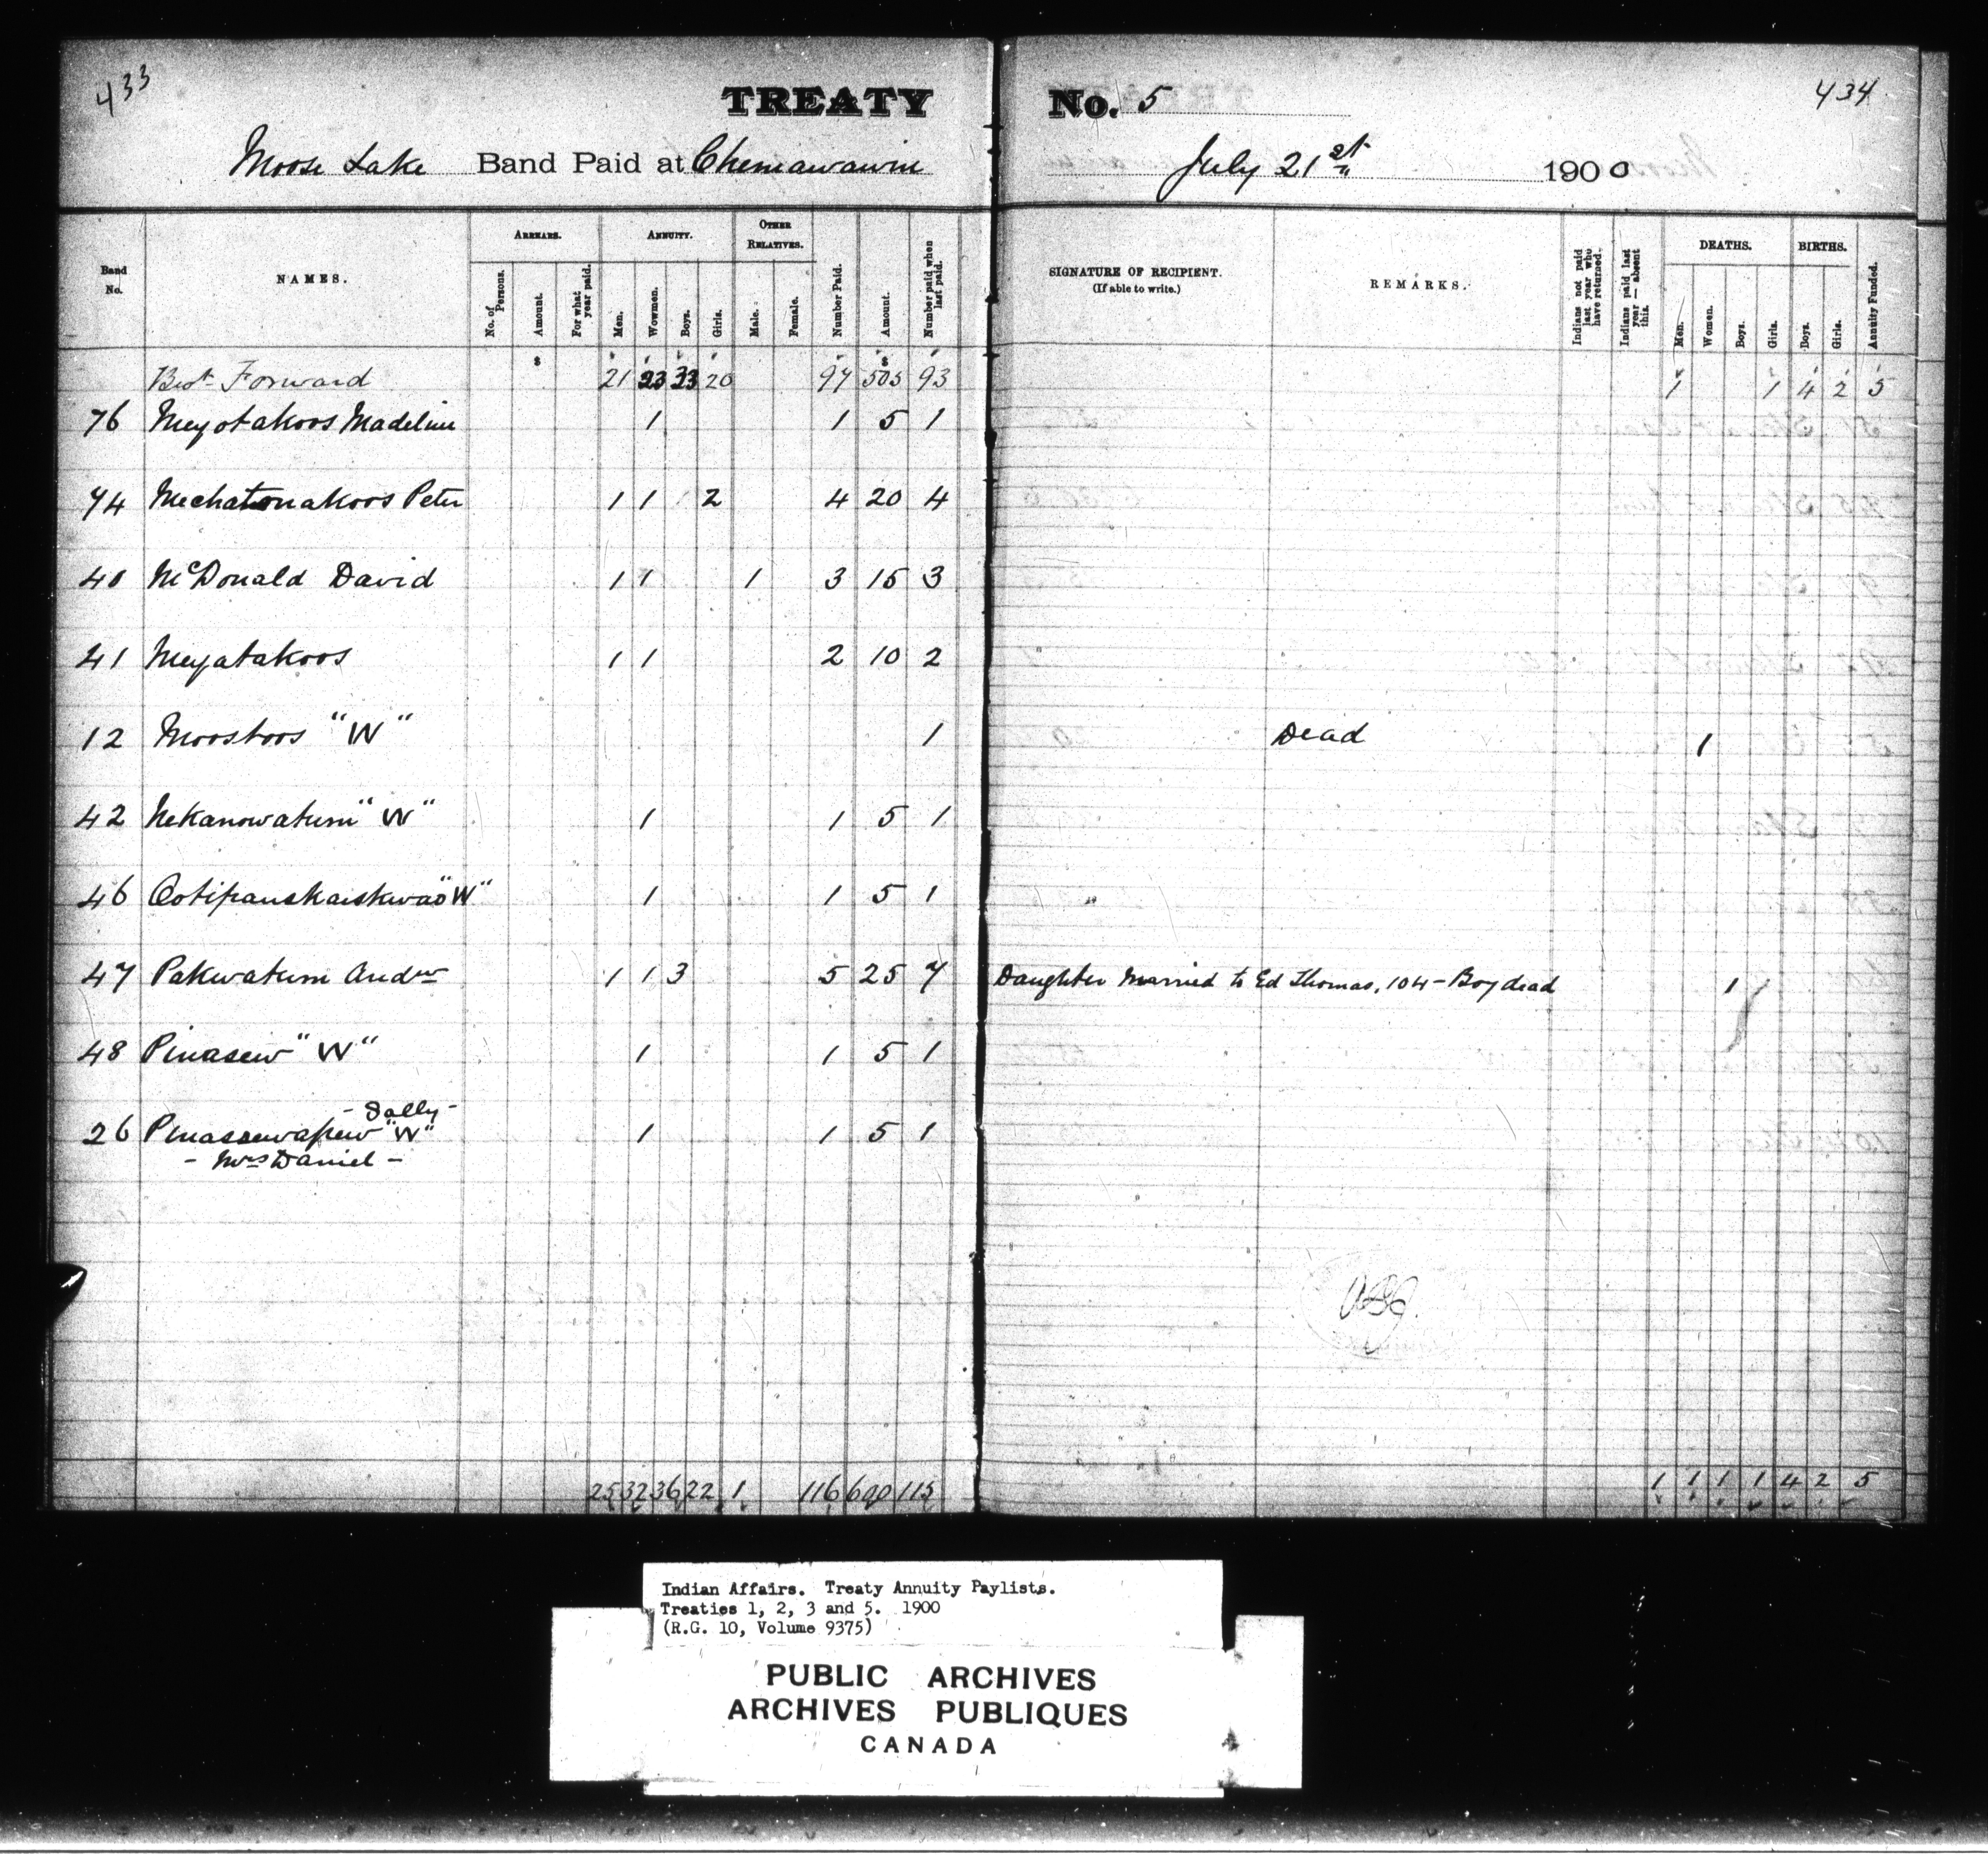 433
TREATY No. 5
434
Moose Lake Band Paid at Chemawawin July 21st 1900
Band No.
NAMES.
ARREARS.
No. of Persons.
Amount.
For what year paid.
ANNUITY.
Men.
Wowmen.
Boys.
Girls.
OTHER RELATIVES.
Male.
Female.
Number Paid.
Amount.
Number paid when last paid.
SIGNATURE OF RECIPIENT.
(If able to write.)
REMARKS.
Indians not paid last year who have returned.
Indians paid last year — absent this.
DEATHS.
Men.
Women.
Boys.
Girls.
BIRTHS.
Boys.
Girls.
Annuity Funded.
$ $
Brot Forward 21 23 33 20 97 505 93 1 1 4 2 5
76 Meyotakoos Madeline 1 1 5 1
74 Mechatonakoos Peter 1 1 2 4 20 4
40 McDonald David 1 1 1 3 15 3
41 Meyatakoos 1 1 2 10 2
12 Moostoos "W" 1 Dead 1
42 Nekanowatum "W" 1 1 5 1
46 "W" 1 1 5 1
47 Pakwatum Andw 1 1 3 5 25 7 Daughter Married to Ed Thomas, 104 - Boy dead 1
48 Pinasew "W" 1 1 5 1
- Sally -
26 Pinassewapew "W" 1 1 5 1
- Mrs Daniel -
25 32 36 22 1 116 600 115 1 1 1 1 4 2 5
Indian Affairs. Treaty Annuity Paylists.
Treaties 1, 2, 3 and 5. 1900
(R.G. 10, Volume 9375)
PUBLIC ARCHIVES
ARCHIVES PUBLIQUES
CANADA